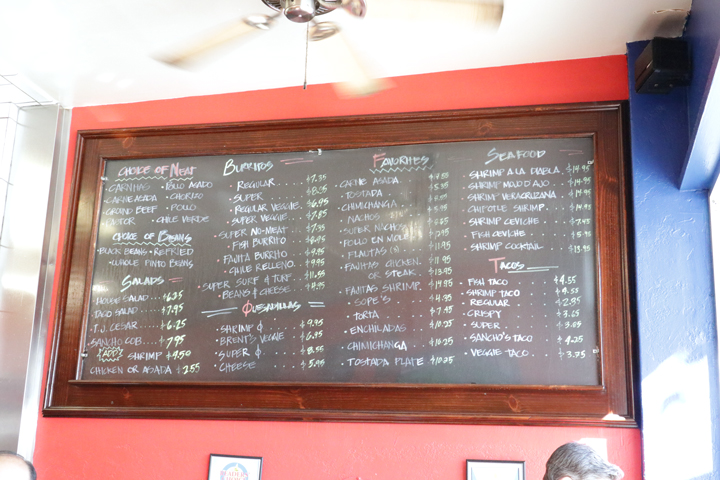 CHOICE OF MEAT
CARNITAS • POLLO ASADO
CARNE ASADA • CHORIZO
GROUND BEEF • POLLO
PASTOR • CHILE VERDE
CHOICE OF BEANS
• BLACK BEANS • REFRIED
• WHOLE PINTO BEANS
SALADS
HOUSE SALAD 6.25
TACO SALAD 7.95
T.J. CESAR 6.25
SANCHO COB 7.95
ADD SHRIMP 4.50
CHICKEN OR ASADA 2.55
BURRITOS
• REGULAR
• SUPER
• REGULAR VEGGIE $6.95
• SUPER VEGGIE $7.85
• SUPER NO-MEAT
FISH BURRITO
FAJITA BURRITO
• CHILE RELLENO
• SUPER SURF & TURF
BEANS & CHEESE
QUESADILLAS
• SHRIMP Q $9.95
• BRENT'S VEGGIE $6.95
• SUPER Q $8.55
• CHEESE $5.95
FAVORITES
CARNE ASADA
TOSTADA
CHIMICHANGA
NACHOS
SUPER NACHOS
POLLO EN MOLE
FLAUTAS
FAJITAS CHICKEN
OR STEAK $13.95
FAJITAS SHRIMP $14.95
SOPE'S
TORTA
• ENCHILADAS $10.25
• CHIMICHANGA $10.25
• TOSTADA PLATE $10.25
SEAFOOD
• SHRIMP A LA DIABLA $14.95
• SHRIMP MOJO D'AJO $14.95
• SHRIMP VERACRUZANA $14.95
• CHIPOTLE SHRIMP $14.95
• SHRIMP CEVICHE
• FISH CEVICHE
• SHRIMP COCKTAIL $13.95
TACOS
• FISH TACO $4.55
• SHRIMP TACO $4.55
• REGULAR $2.95
• CRISPY $3.65
• SUPER $3.85
• SANCHO'S TACO $4.25
• VEGGIE TACO $3.75